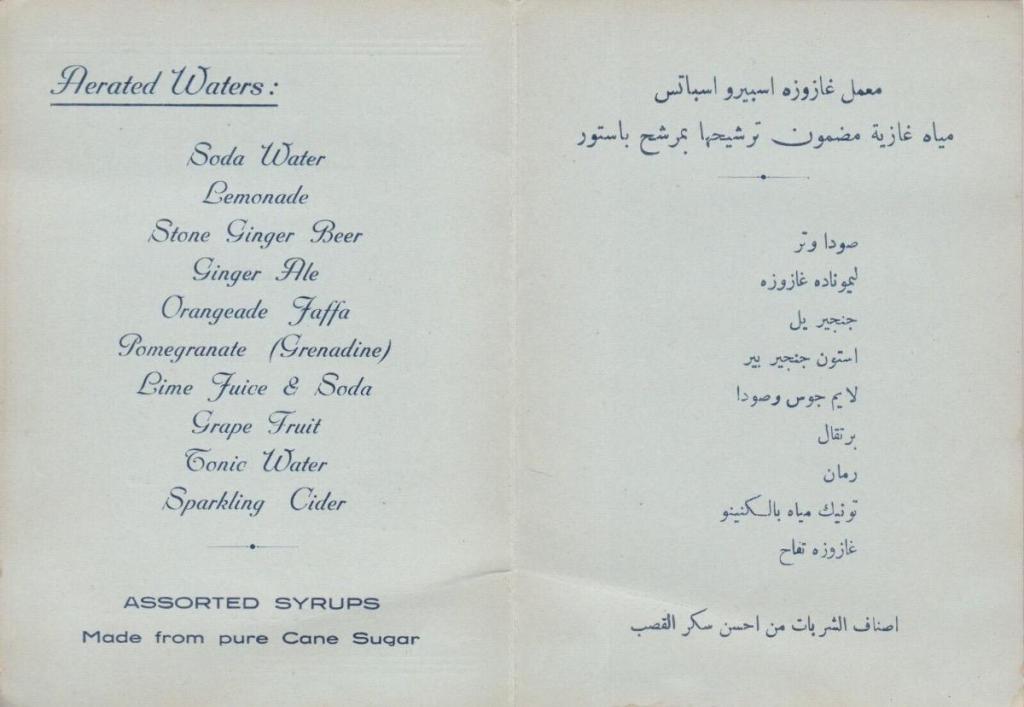 Aerated Waters:
Soda Water
Lemonade
Stone Ginger Beer
Ginger Ale
Orangeade Jaffa
Pomegranate (Grenadine)
Lime Juice & Soda
Grape Fruit
Tonic Water
Sparkling Cider
ASSORTED SYRUPS
Made from pure Cane Sugar
معمل غازوزه اسبيرو اسباتس
مياه غازية مضمون ترشيحها بمرشح باستور
صودا وتر
ليموناده غازوزه
جنجير يل
استون جنجير بير
لايم جوس وصودا
برتقال
رمان
تونيك مياه بالكنينو
غازوزه تفاح
اصناف الشربات من احسن سكر القصب